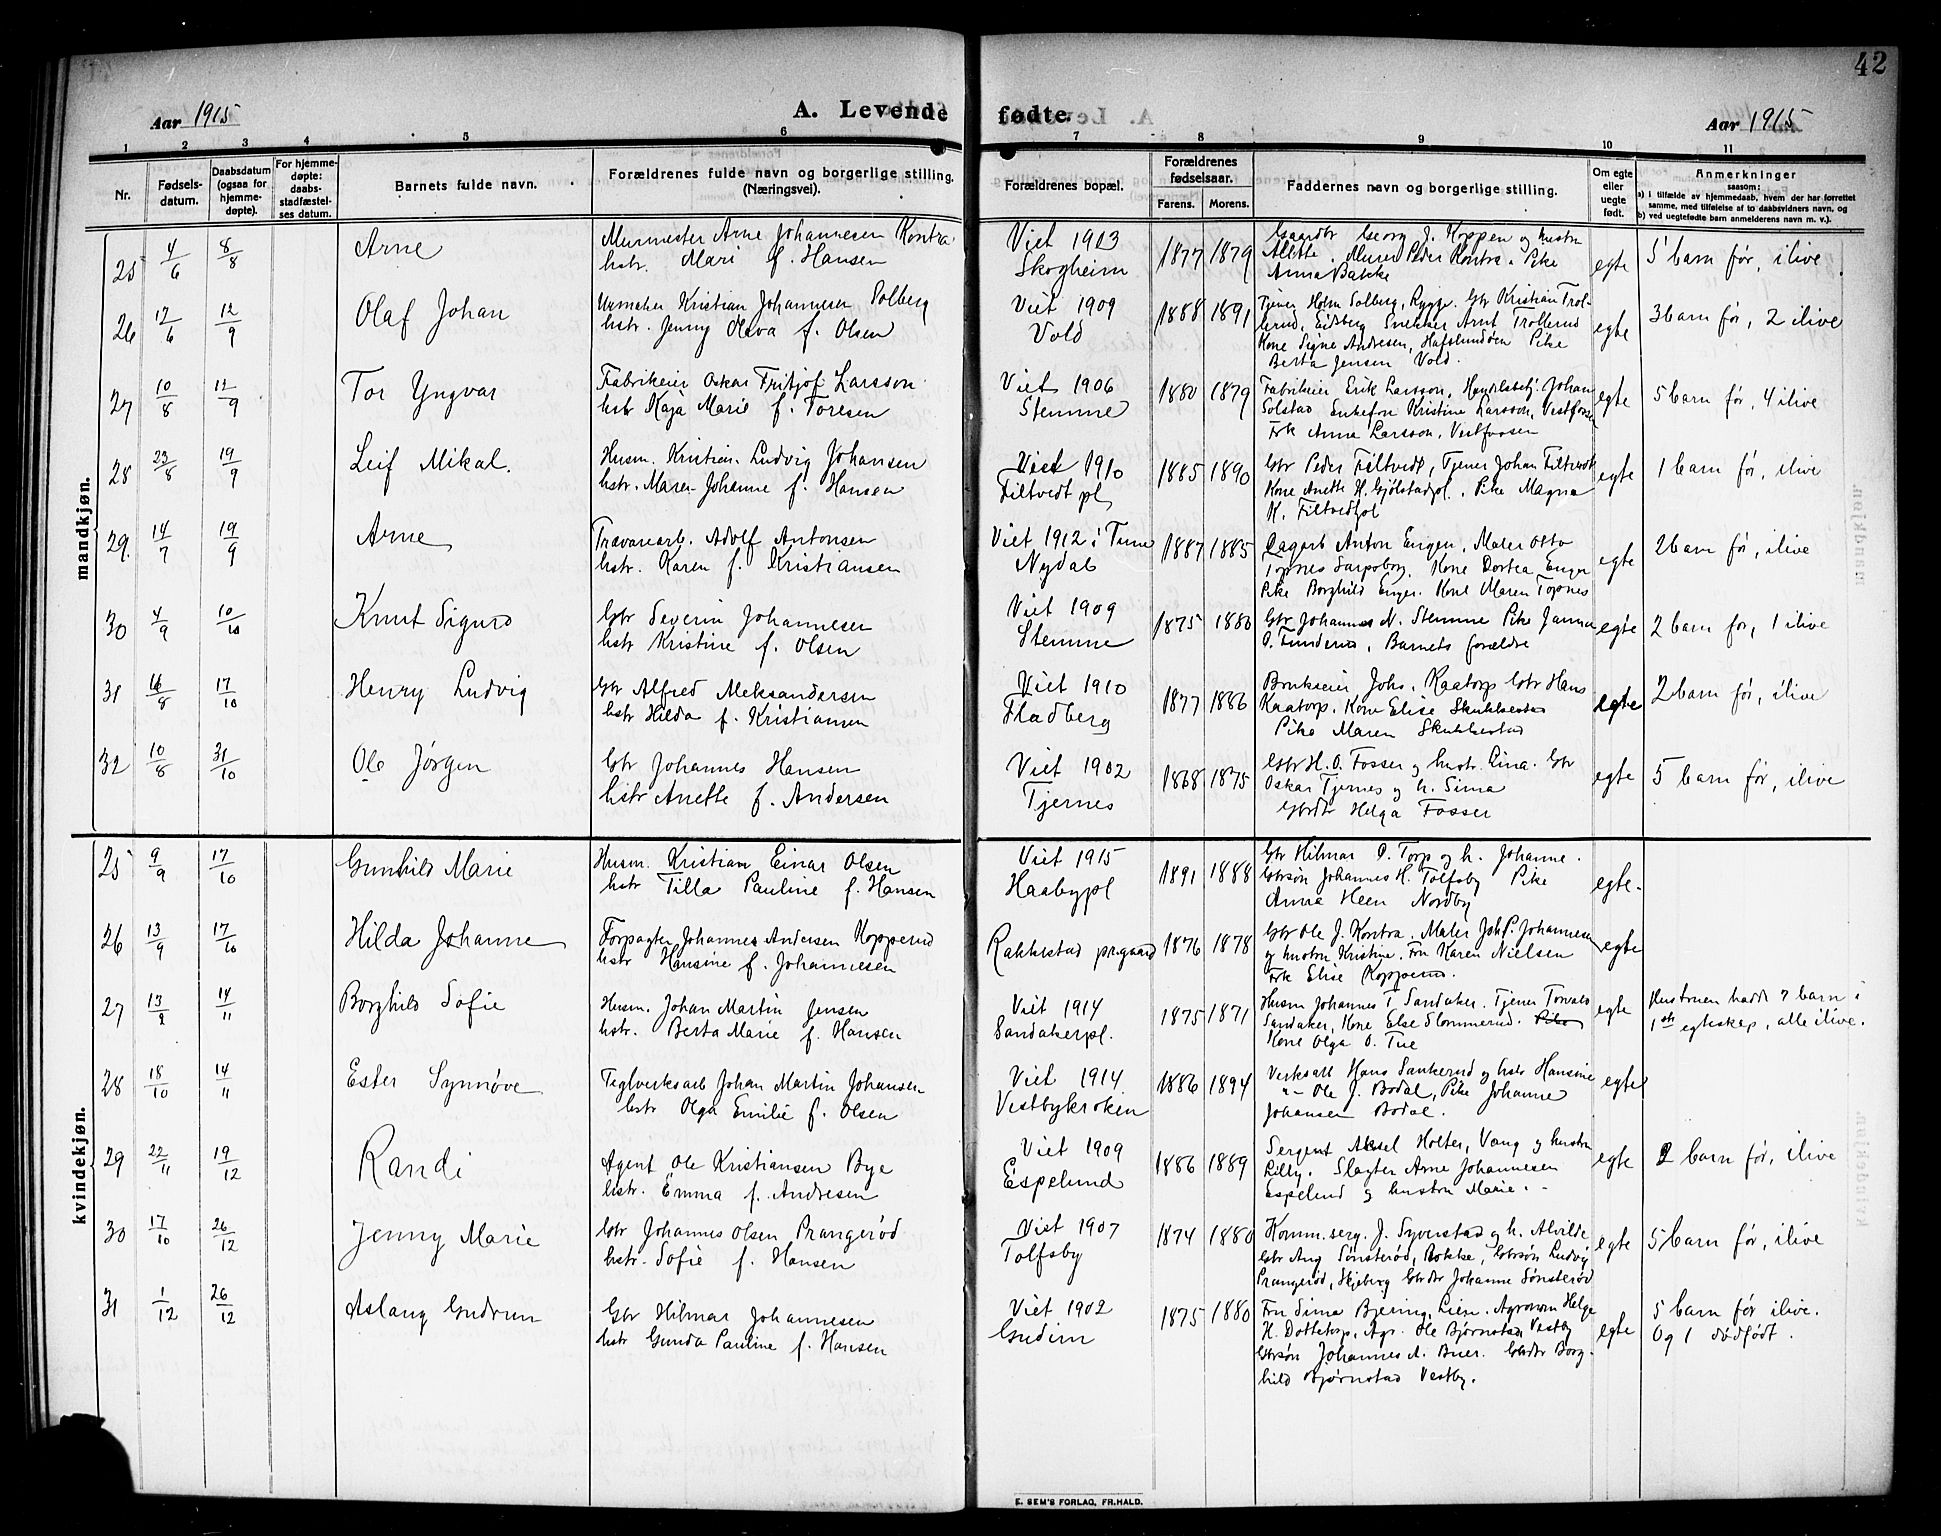 42
Aar 1915
A. Levende fødte.
Aar 1915
1 2 3 4 5 6 7 8 9 10 11
Nr.
Fødsels-
datum.
Daabsdatum
(ogsaa for
hjemme-
døpte).
For hjemme-
døpte:
daabs-
stadfæstel-
ses datum.
Barnets fulde navn.
Forældrenes fulde navn og borgerlige stilling.
(Næringsvei).
Forældrenes bopæl.
Forældrenes
fødselsaar.
Farens. Morens.
Faddernes navn og borgerlige stilling.
Om egte
eller
uegte
født.
Anmerkninger
saasom:
a) i tilfælde av hjemmedaab, hvem der har forrettet
samme, med tilføielse af to daabsvidners navn, og
b) ved uegtefødte barn anmelderens navn m. v.).
mandkjøn.
25 4/6 8/8 Arne
Murmester Arne Johannesen Kontra
hstr. Mari f. Hansen
Viet 1913
Skogheim
1877 1879
Gaardbr Georg J. Koppen og hustru
Alette. Murer Peder Kontra. Pike
Anna Bakke
egte
5 barn før, ilive
26 17/6 12/9 Olaf Johan
Urmaker Kristian Johannesen Solberg
hstr. Jenny Oleva f. Olsen
Viet 1909
Vold
1888 1891
Tjener Holm Solberg, Rygge. Gbr Kristian Trol-
lerud, Eidsberg Snekker Arnt Trollerud
Kone Signe Andresen, Hafslundsøen Pike
Berta Jensen Vold.
egte
3 barn før, 2 ilive
27 10/8 12/9 Tor Yngvar
Fabrikeier Oskar Fritjof Larsson
hstr Kaja Marie f. Toresen
Viet 1906
Stemme
1880 1879
Fabrikeier Erik Larsson, Handelsbetj. Johan
Solstad Enkefru Kristine Larsson, Vestfossen
Frk Anna Larsson, Vestfossen
egte
5 barn før, 4 ilive
28 23/8 19/9 Leif Mikal.
Husm. Kristian Ludvig Johansen
hstr. Maren Johanne f. Hansen
Viet 1910
Filtvedt pl
1885 1890
Gbr Peder Filtvedt, Tjener Johan Filtvedt
Kone Anette H. Gjølstadpl. Pike Magna
K. Filtvedtpl
egte
1 barn før, ilive
29. 14/7 19/9 Arne
Trævarearb. Adolf Antonsen
hstr. Karen f. Kristiansen
Viet 1912 i Tune
Nydal
1887 1885
Lagerb Anton Engen, Maler Otto
Topnes Sarpsborg, Kone Dortea Enger
Pike Borghild Enger. Kone Maren Topnes
egte
2 barn før, ilive
30 4/9 10/10 Knut Sigurd
Gbr Severin Johannesen
hstr Kristine f. Olsen
Viet 1909
Stemme
1875 1880
Gbr Johannes N. Stemme Pike Janna
O. Funderud, Barnets forældre
egte
2 barn før, 1 ilive
31 16/8 17/10 Henry Ludvig
Gbr Alfred Aleksandersen
hstr Hilda f. Kristiansen
Viet 1910
Fladberg
1877 1886
Brukseier Johs. Kaatorp Gbr Hans
Kaatorp. Kone Elise Skubbestad
Pike Maren Skubbestad
egte
2 barn før, ilive
32 10/8 31/10 Ole Jørgen
Gbr Johannes Hansen
hstr Anette f. Andersen
Viet 1902
Tjernes
1868 1875
Gbr H. O. Fosser og hustr. Lina. Gbr
Oskar Tjernes og h. Sina
Gbrdtr Helga Fosser
egte
5 barn før, ilive
kvindekjøn.
25 9/9 17/10 Gunhild Marie
Husm. Kristian Einar Olsen
hstr Tilla Pauline f. Hansen
Viet 1915
Haabypl
1891 1888
Gbr Hilmar O. Torp og h. Johanne.
Gbrsøn Johannes H. Tolfsby Pike
Anna Heen Nordby
egte.
26 13/9 17/10 Hilda Johanne
Forpagter Johannes Andersen Kopperud
hstr Hansine f. Johannesen
Rakkestad prgaard
1876 1878
Gbr Ole J. Kontra. Maler Joh P. Johannesen
og hustru Kristine. Fru Karen Nielsen
Frk Elise Kopperud.
egte
27 13/2 14/11 Borghild Sofie
Husm. Johan Martin Jensen
hstr. Berta Marie f. Hansen
Viet 1914
Sandakerpl.
1875 1871
Husm Johannes T Sandaker. Tjener Torvald
Sandaker, Kone Else Slommerud. Pike
Kone Olga O. Tue
egte
Hustruen hadde 7 barn i
1ste egteskap, alle ilive.
28 18/10 14/11 Ester Synnøve
Teglverksarb Johan Martin Johansen
hstr Olga Emilie f. Olsen
Viet 1914
Vestbykroken
1886 1894
Verksarb Hans Sankerud og hstr Hansine
"– Ole J. Bodal, Pike Johanne
Johansen Bodal.
egte
29 22/11 19/12 Randi
Agent Ole Kristiansen Bye
hstr. Emma f. Andresen
Viet 1909
Espelund
1886 1889
Sergent Aksel Holter, Vang og hustru
Lilly. Slagter Arne Johannesen
Espelund og hustru Marie.
egte
2 barn før, ilive
30 17/10 26/12 Jenny Marie
Gbr Johannes Olsen Prangerød
hstr. Sofie f. Hansen
Viet 1907
Tolfsby
1874 1880
Komm.serg. J. Syverstad og h. Alvilde
Gbr Aug Sønsterød, Rokke, Gbrsøn Ludvig
Prangerød, Skjeberg Gbrdtr Johanne Sønsterød
egte
5 barn før, ilive
31 1/12 26/12 Aslaug Gudrun
Gbr Hilmar Johannesen
hstr Gunda Pauline f. Hansen
Viet 1902
Gudim
1875 1880
Fru Sina Bjering, Lien. Agronom Helge
H. Dottetorp, Agr. Ole Bjørnstad Vestby
Gbrsøn Johannes A. Buer. Gbrdtr Borg-
hild Bjørnstad Vestby.
egte
5 barn før ilive.
Og 1 dødfødt.
E. SEM'S FORLAG, FR.HALD.